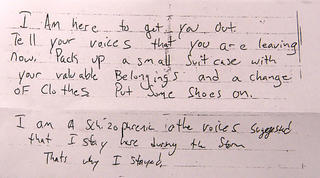 I Am here to get you out.
Tell your voices that you are leaving
now. Pack up a small suitcase with
your valuable Belongings and a change
OF Clothes Put some Shoes on.
I am A Schizophrenic the voices suggested
that I stay here during the storm
Thats why I stayed.